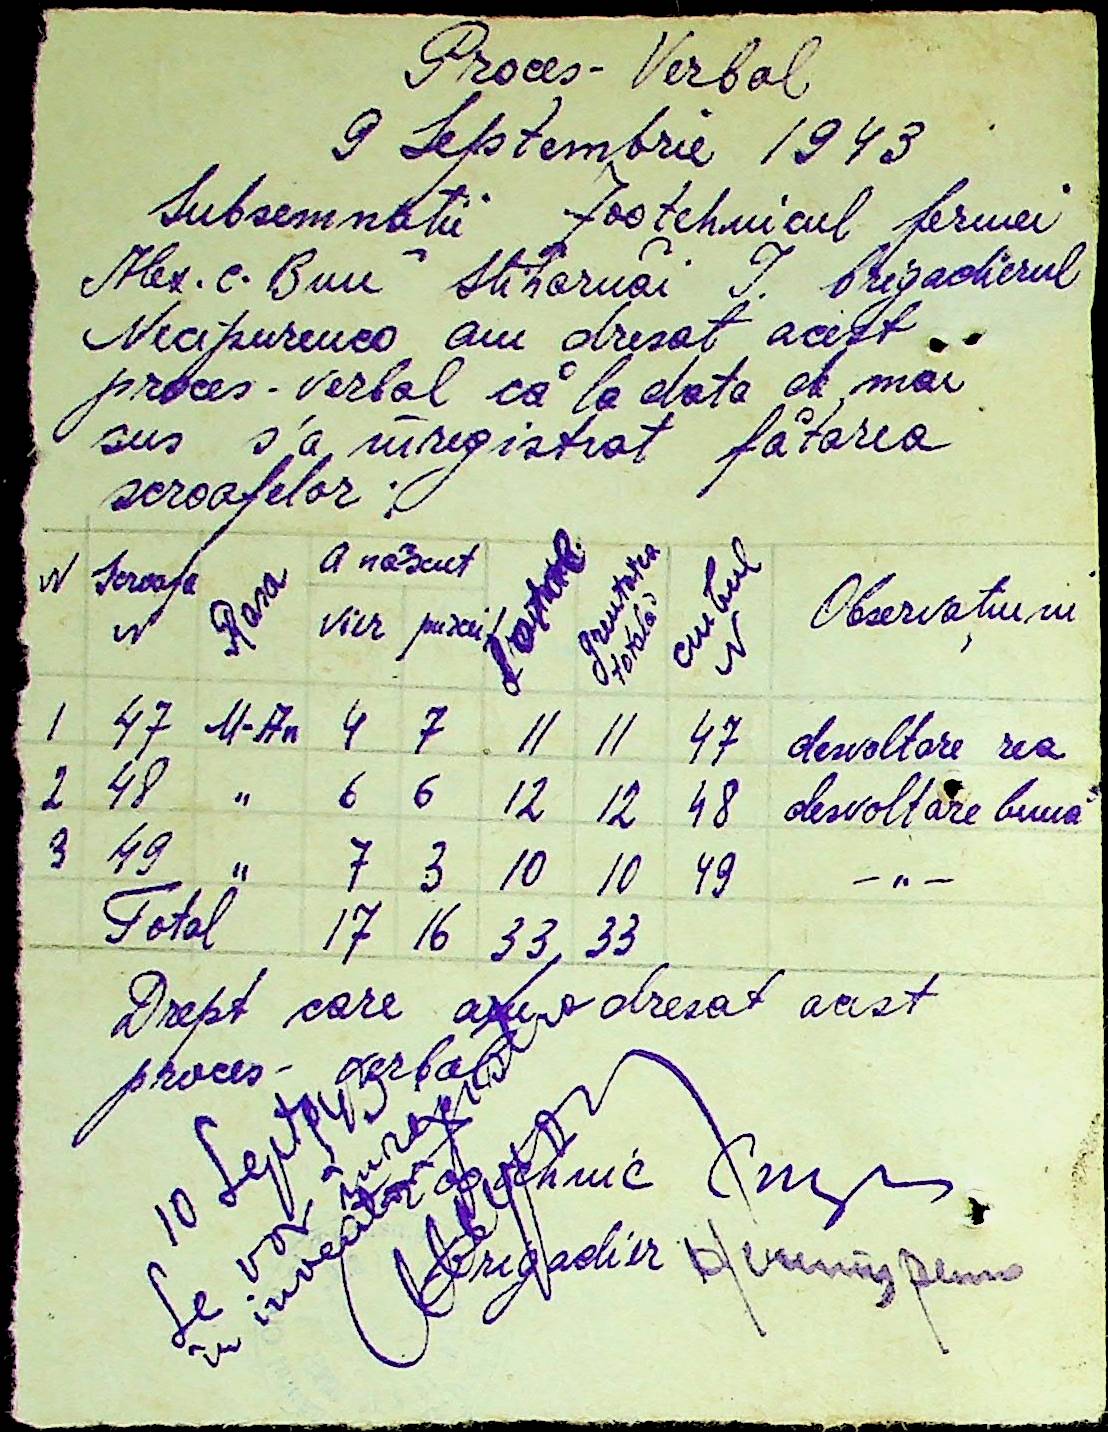 Proces-Verbal
9 Septembrie 1943
Subsemnații Zootehnicul fermei
Alex. c. Bun Stiharnâi I. brigadierul
Necipurenco am dresat acest
proces-verbal că la data de mai
sus s'a înregistrat fătarea
scroafelor:
N Scroafa N Rasa A născut vier purcei greutatea totală cu bul N Observațiuni
1 47 M-An 4 7 11 11 47 desvoltare rea
2 48 " 6 6 12 12 48 desvoltare bună
3 49 " 7 3 10 10 49 -"-
Total 17 16 33 33
Drept care am dresat acest
proces-verbal
10 Sept 943
Se vor înregistra
în inventar
Zootehnic
Brigadier